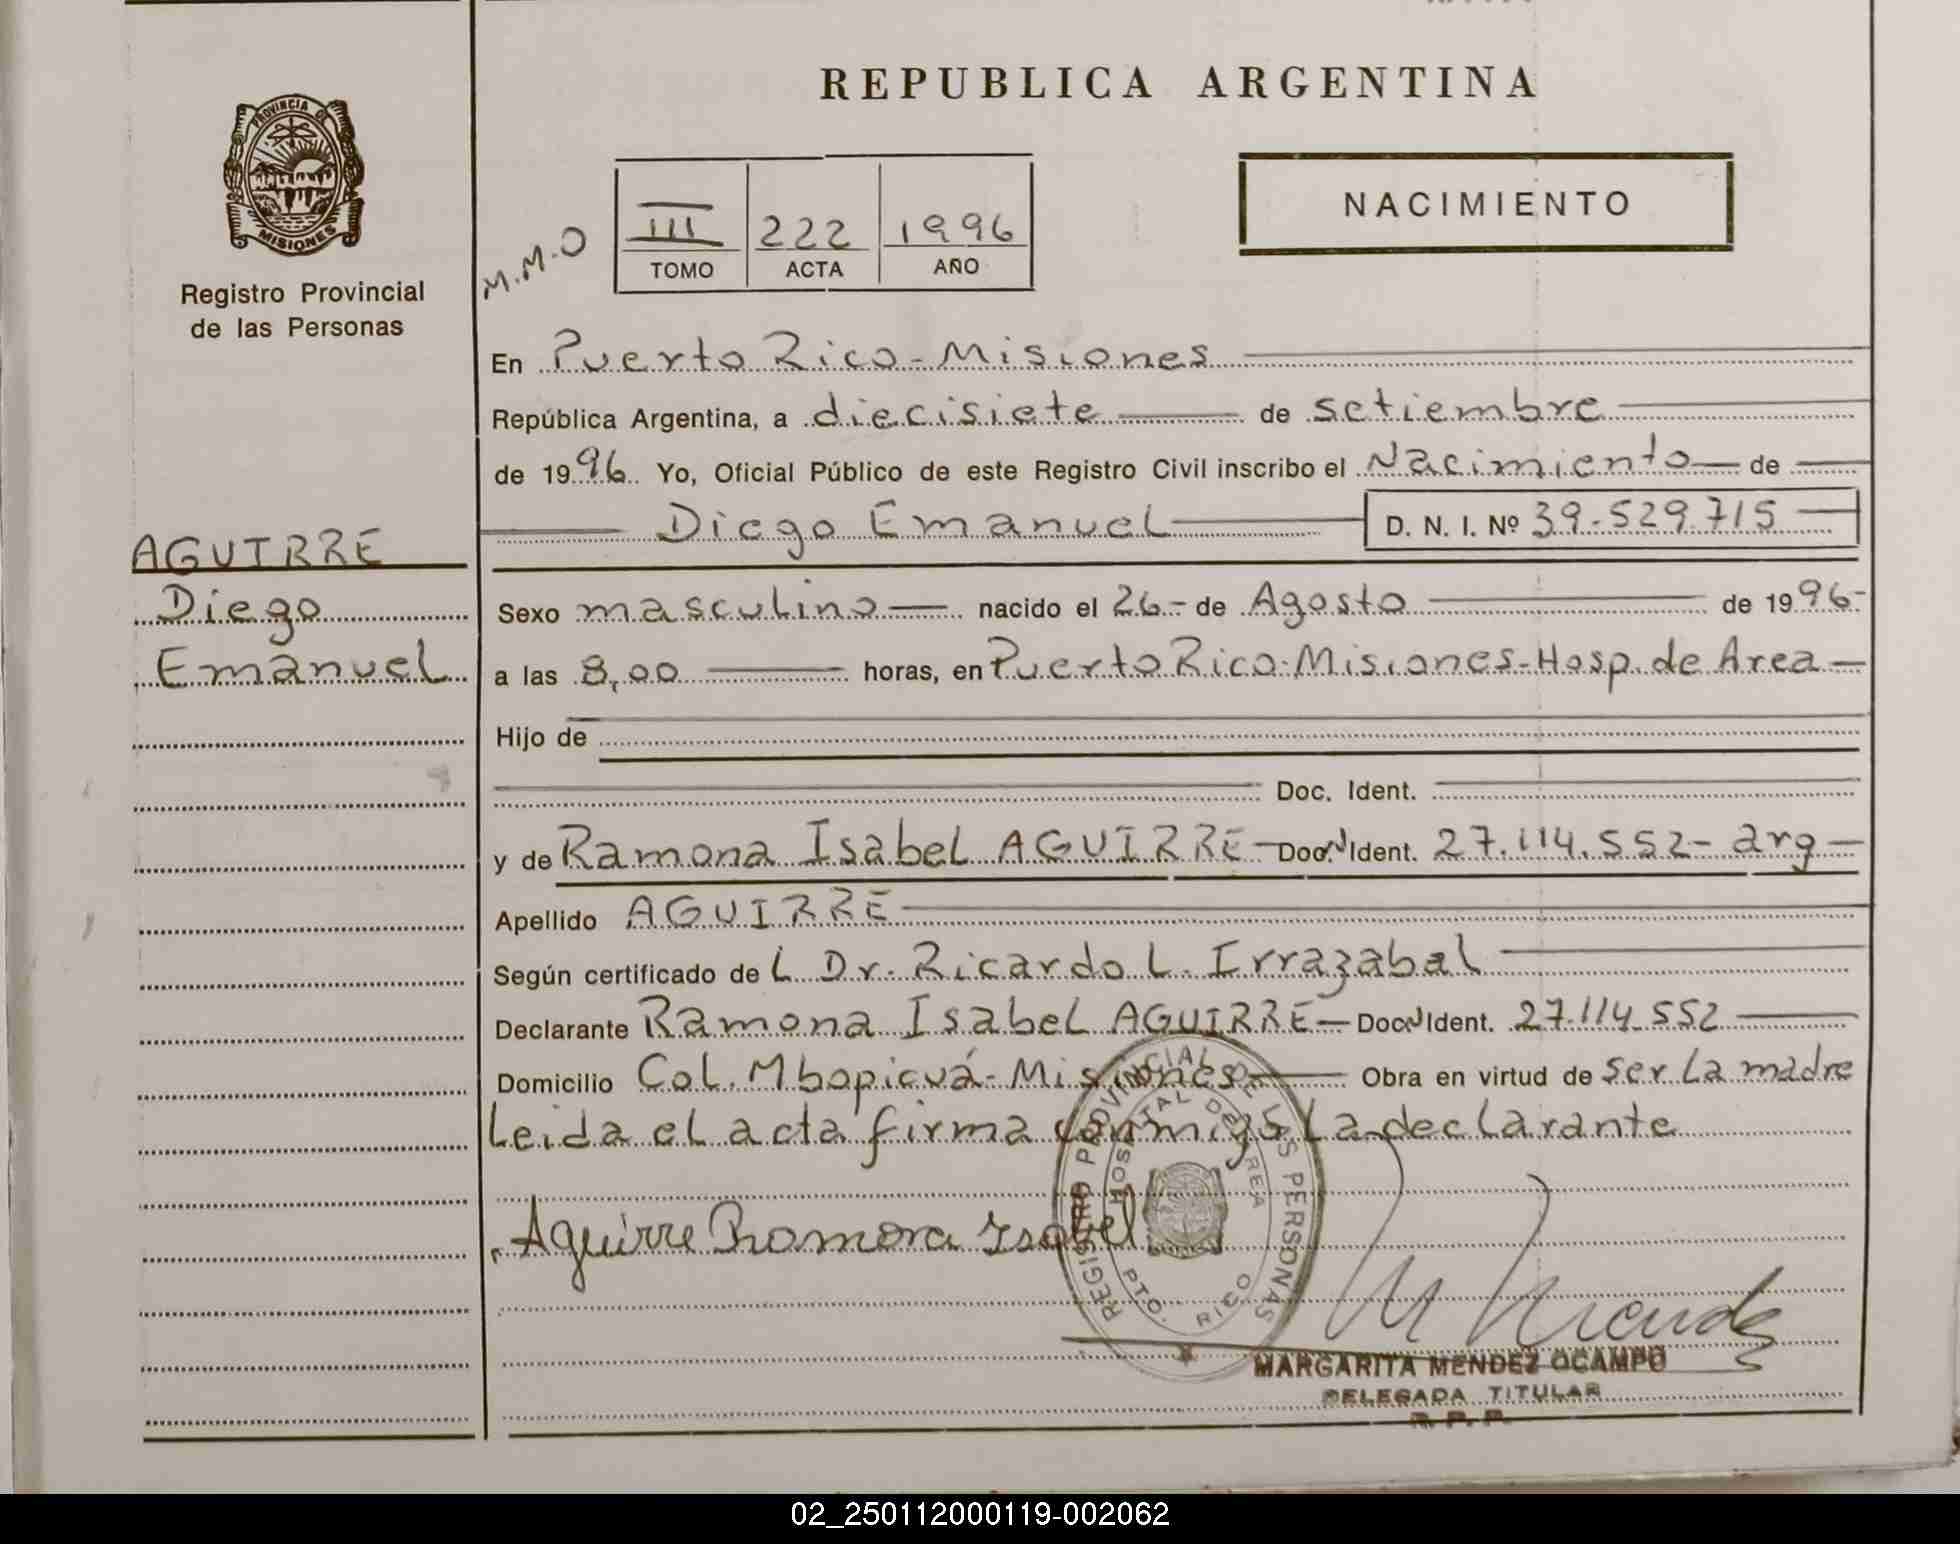 REPUBLICA ARGENTINA
PROVINCIA DE
MISIONES
Registro Provincial
de las Personas
NACIMIENTO
M.M.O
III 222 1996
TOMO ACTA AÑO
En Puerto Rico - Misiones
República Argentina, a diecisiete de setiembre
de 1996 Yo, Oficial Público de este Registro Civil inscribo el Nacimiento de
Diego Emanuel D. N. I. Nº 39.529.715
AGUIRRE
Diego
Emanuel
Sexo masculino nacido el 26- de Agosto de 1996-
a las 8,00 horas, en Puerto Rico-Misiones-Hosp. de Area
Hijo de
Doc. Ident.
y de Ramona Isabel AGUIRRE Doc. Ident. 27.114.552- arg
Apellido AGUIRRE
Según certificado de L Dr. Ricardo L. Irrazabal
Declarante Ramona Isabel AGUIRRE Doc. Ident. 27.114.552
Domicilio Col. Mbopicuá - Misiones Obra en virtud de ser La madre
Leida el acta firma conmigo La declarante
Aguirre Ramona Isabel
REGISTRO PROVINCIAL DE LAS PERSONAS
HOSPITAL DE AREA
PTO. RICO
MARGARITA MENDEZ OCAMPO
DELEGADA TITULAR
R. P. P.
02_250112000119-002062